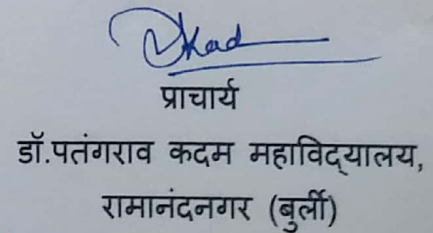 प्राचार्य
डॉ.पतंगराव कदम महाविद्यालय,
रामानंदनगर (बुर्ली)